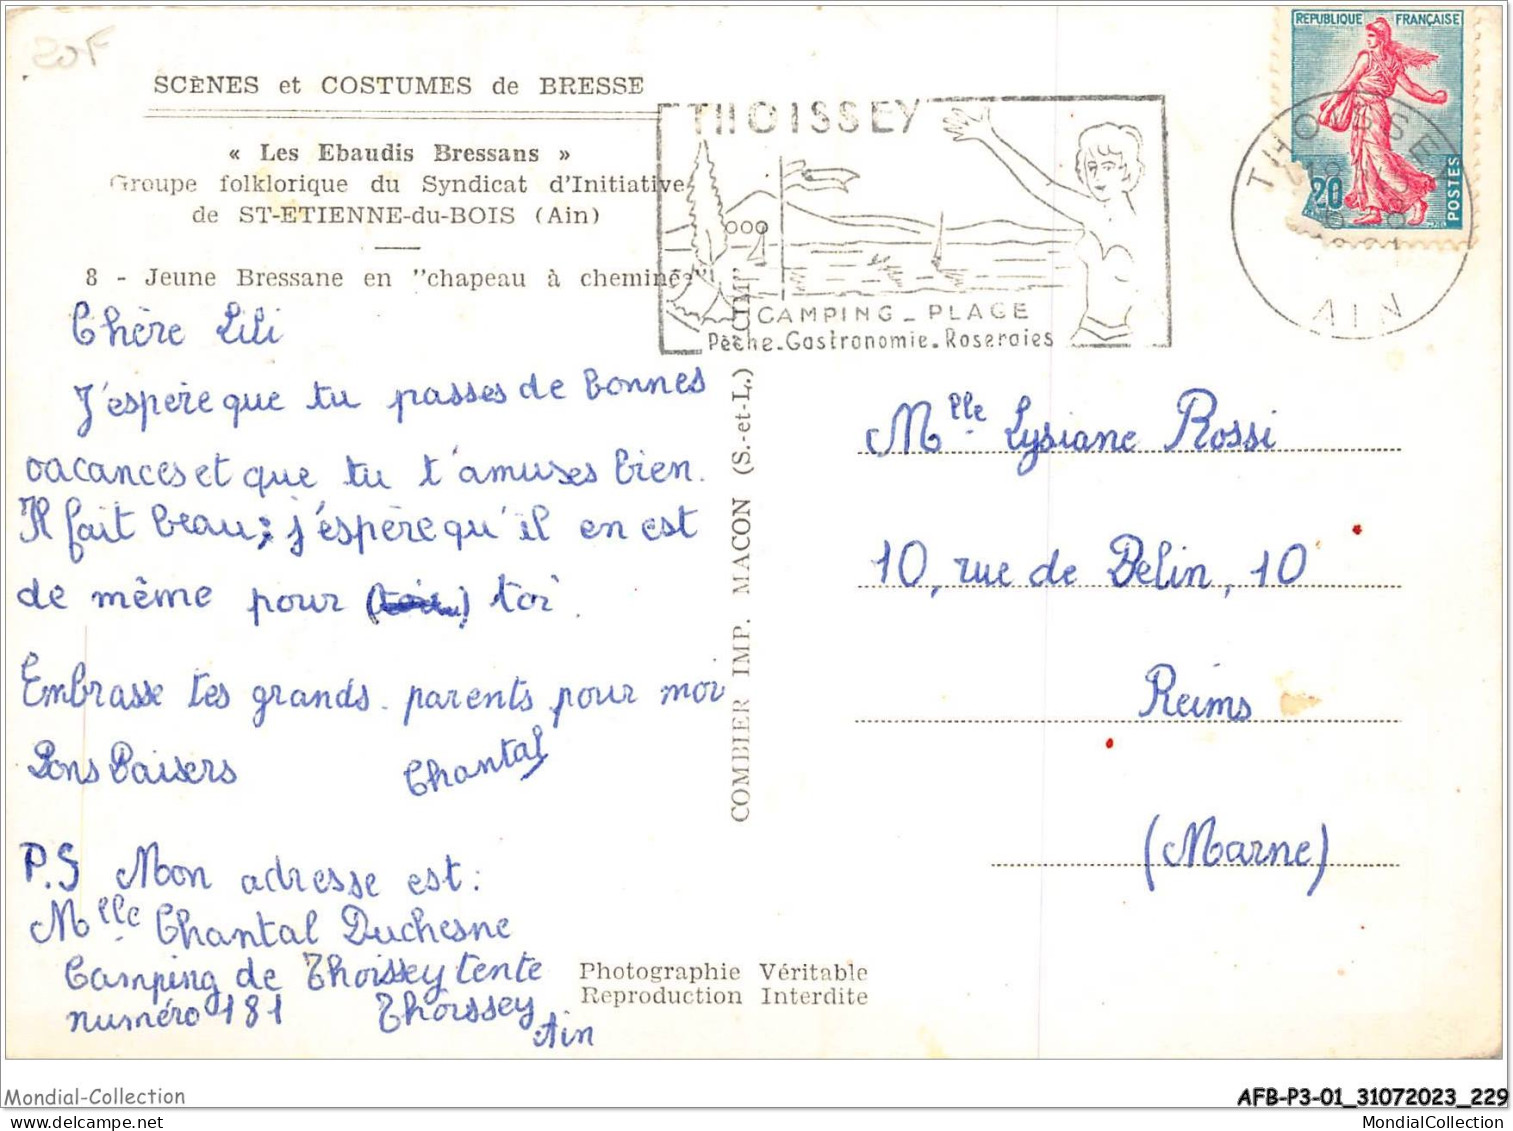 20F
SCÈNES et COSTUMES de BRESSE
« Les Ebaudis Bressans »
Groupe folklorique du Syndicat d'Initiative
de ST-ETIENNE-du-BOIS (Ain)
8 - Jeune Bressane en "chapeau à cheminée"
Chère Lili
J'espère que tu passes de bonnes
vacances et que tu t'amuses bien.
Il fait beau; j'espère qu'il en est
de même pour toi.
Embrasse tes grands-parents pour moi
Bons Baisers
Chantal
P.S Mon adresse est:
Mlle Chantal Duchesne
Camping de Thoissey tente
numéro 181 Thoissey
Ain
COMBIER IMP. MACON (S.-et-L.) "CIM"
Photographie Véritable
Reproduction Interdite
THOISSEY
CAMPING - PLAGE
Pêche-Gastronomie-Roseraies
REPUBLIQUE FRANÇAISE
20
POSTES
THOISSEY
AIN
Mlle Lysiane Rossi
10, rue de Belin, 10
Reims
(Marne)
Mondial-Collection
AFB-P3-01_31072023_229
MondialCollection